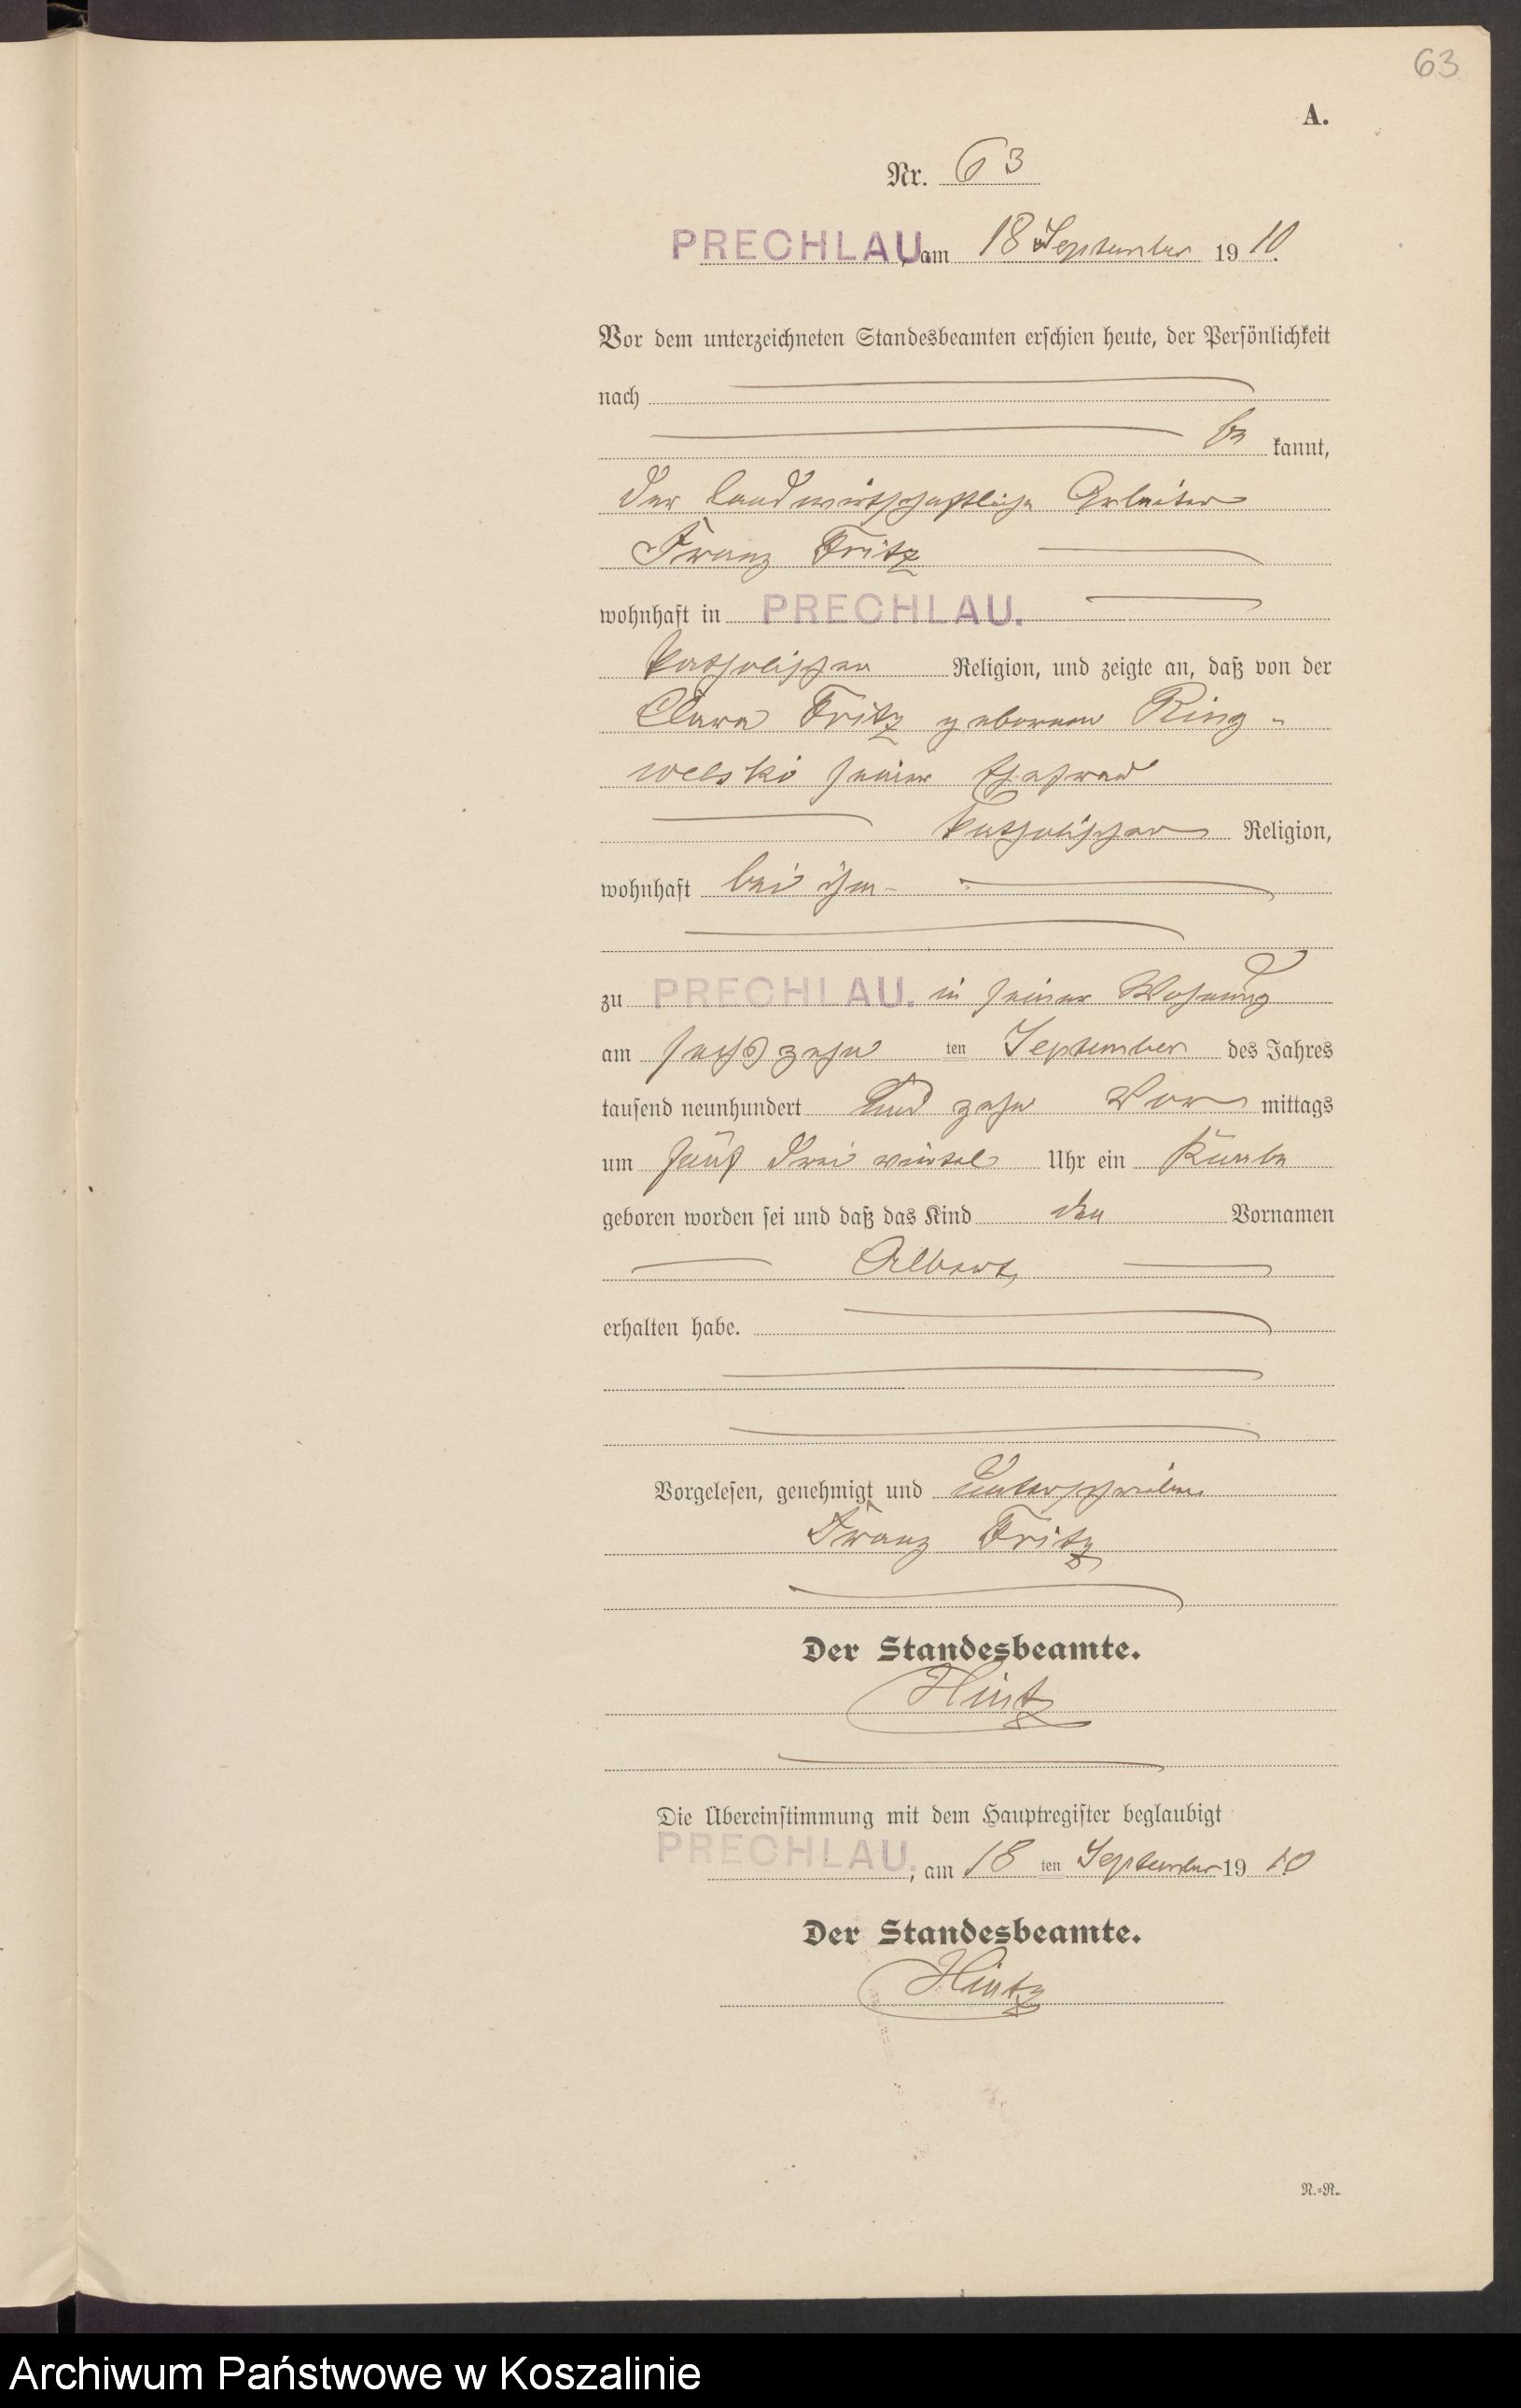 63
A.
Nr. 63
PRECHLAU, am 18 September 1910.
Vor dem unterzeichneten Standesbeamten erschien heute, der Persönlichkeit
nach
be kannt,
der landwirtschaftliche Arbeiter
Franz Fritz
wohnhaft in PRECHLAU.
katholischen Religion, und zeigte an, daß von der
Clara Fritz geborenen Ring-
welski seiner Ehefrau
katholischer Religion,
wohnhaft bei ihm
zu PRECHLAU. in seiner Wohnung
am sechszehn ten September des Jahres
tausend neunhundert und zehn Vor mittags
um fünf drei viertel Uhr ein Knabe
geboren worden sei und daß das Kind den Vornamen
Albert
erhalten habe.
Vorgelesen, genehmigt und unterschrieben
Franz Fritz
Der Standesbeamte.
Hintz
Die Übereinstimmung mit dem Hauptregister beglaubigt
PRECHLAU, am 18 ten September 1910
Der Standesbeamte.
Hintz
N.=N.
Archiwum Państwowe w Koszalinie